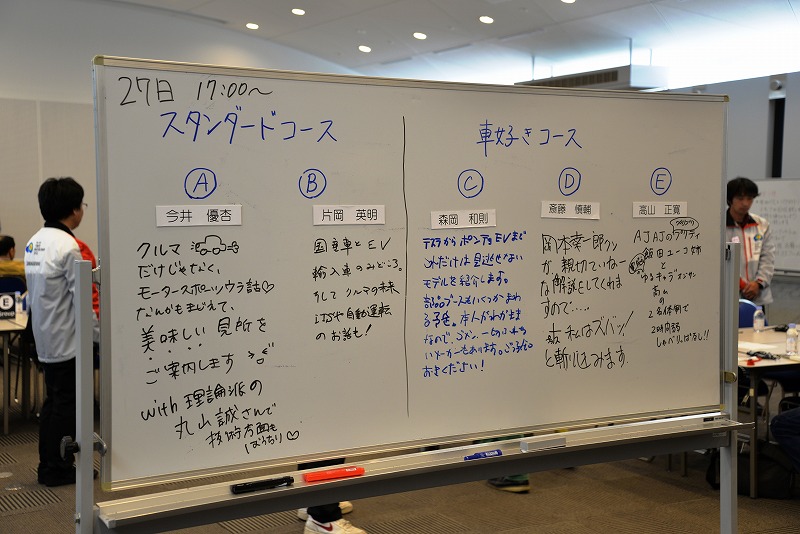 27日 17:00〜
スタンダードコース
Ⓐ
今井 優杏
クルマ
だけじゃなく、
モータースポーツウラ話♡
なんかもまじえて、
美味しい見所を
ご案内します
with 理論派の
丸山誠さんで
技術方面も
ばっちり♡
Ⓑ
片岡 英明
国産車とEV
輸入車のみどころ。
そして クルマの未来
ITSや自動運転
のお話も!
車好きコース
Ⓒ
森岡 和則
テスラからポンテSEVまで
これだけは見逃せない
モデルを紹介します。
部品ブースもいくつかまわ
る予定。
なので、ゴメン、一切ふれな
いメーカーもあります。ご了承
おきください!
Ⓓ
斎藤 慎輔
岡本幸一郎クン
が親切ていねい
な解説をしてくれま
すので・・・、
私はズバッ!
と斬り込みます.
Ⓔ
高山 正寛
AJAJの
飯田ユーコ
と
ゆるキャラデオッサン
高山の
2名体制で
2時間話
しゃべりっぱなし!!
E
Group